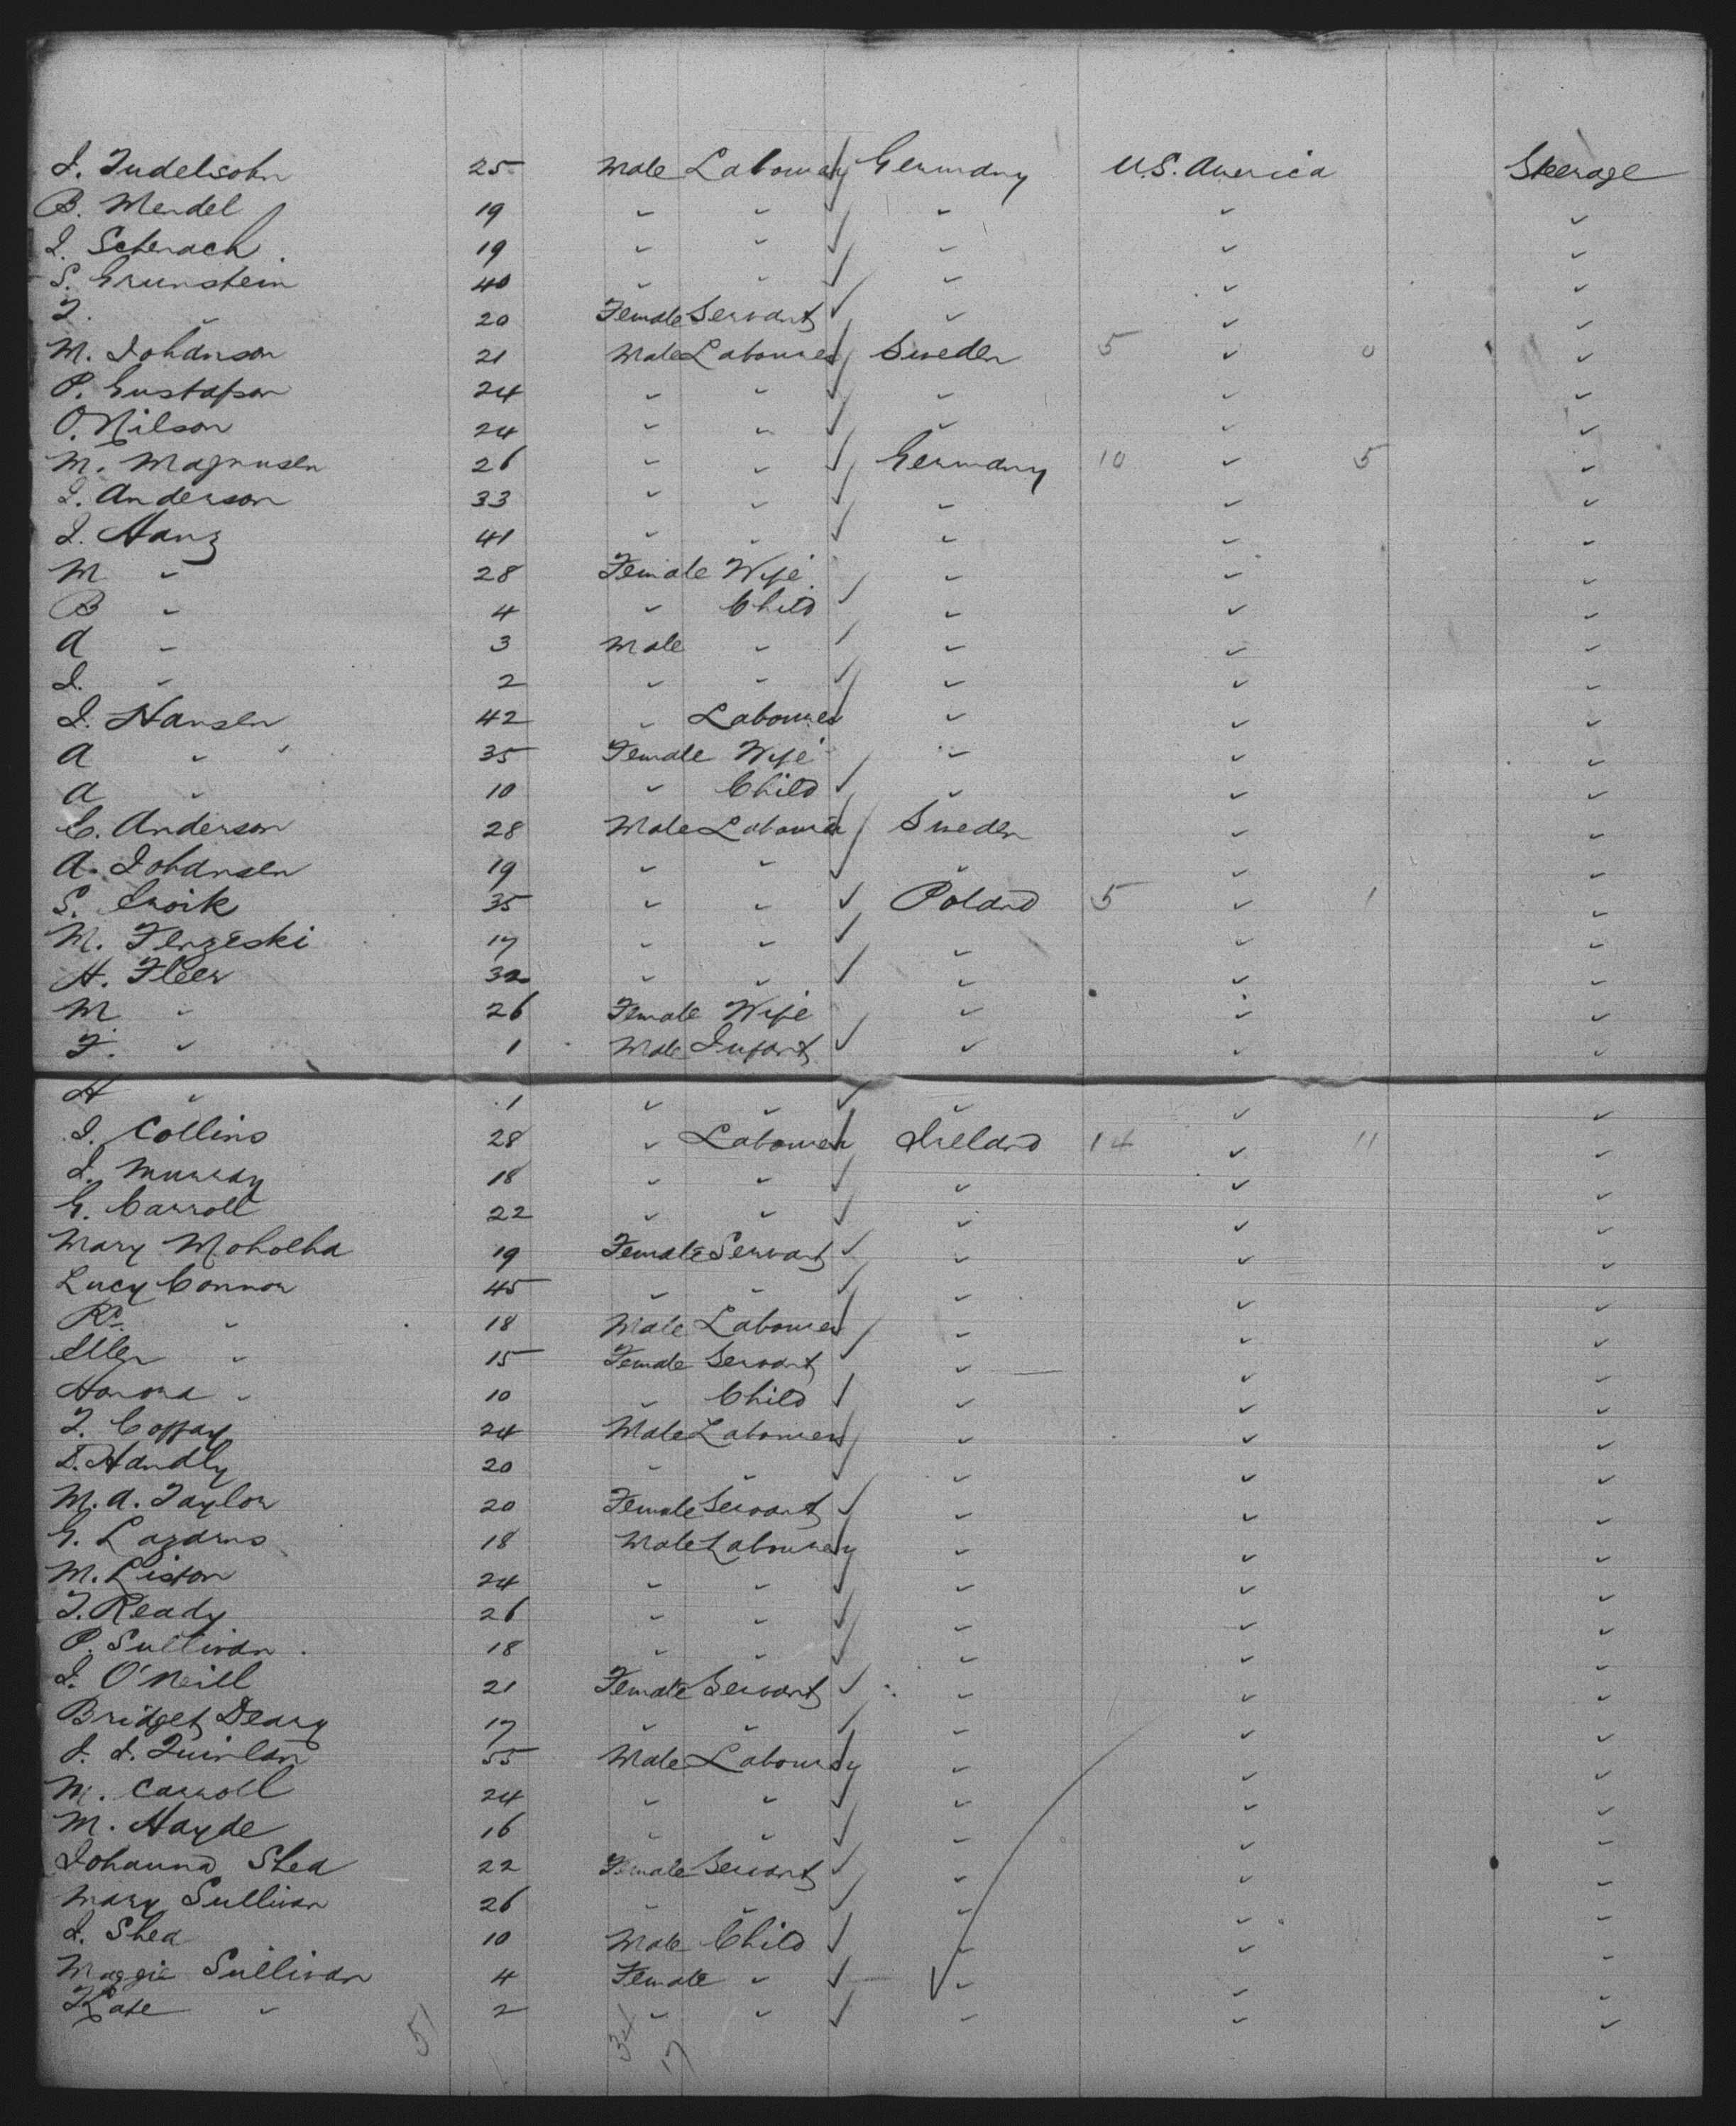 I. Judelsohn 25 Male Labourer Germany U.S. America Steerage
B. Mendel 19 " " " " "
I. Scherach 19 " " " " "
S. Grunstein 40 " " " " "
T. " 20 Female Servant " " "
M. Johanson 21 Male Labourer Sweden 5 " 0 "
P. Gustafson 24 " " " " "
O. Nilson 24 " " " " "
M. Magnusen 26 " " Germany 10 " 5 "
I. Anderson 33 " " " " "
I. Hanz 41 " " " " "
M " 28 Female Wife " " "
B " 4 " Child " " "
A " 3 Male " " " "
I. " 2 " " " " "
I. Hansen 42 " Labourer " " "
A " 35 Female Wife " " "
A " 10 " Child " " "
C. Anderson 28 Male Labourer Sweden " "
A. Johansen 19 " " " " "
S. 35 " " Poland 5 " 1 "
M. Ferzeski 17 " " " " "
H. Fleer 32 " " " " "
M " 26 Female Wife " " "
F. " 1 Male Infant " " "
H " 1 " " " " "
I. Collins 28 " Labourer Ireland 14 " 11 "
I. Murray 18 " " " " "
G. Carroll 22 " " " " "
Mary 19 Female Servant " " "
Lucy Connor 45 " " " " "
" 18 Male Labourer " " "
Ellen " 15 Female Servant " " "
Honora " 10 " Child " " "
T. Coffay 24 Male Labourer " " "
D. Handly 20 " " " " "
M. A. Taylor 20 Female Servant " " "
G. Lazarus 18 Male Labourer " " "
M. Liston 24 " " " " "
T. Ready 26 " " " " "
P. Sullivan 18 " " " " "
I. O'Neill 21 Female Servant " " "
Bridget Deary 17 " " " " "
J. J. Quinlan 55 Male Labourer " " "
M. Carroll 24 " " " " "
M. Hayde 16 " " " " "
Johanna Shea 22 Female Servant " " "
Mary Sullivan 26 " " " " "
I. Shea 10 Male Child " " "
Maggie Sullivan 4 Female " " " "
Kate " 2 " " " " "
51 34 17